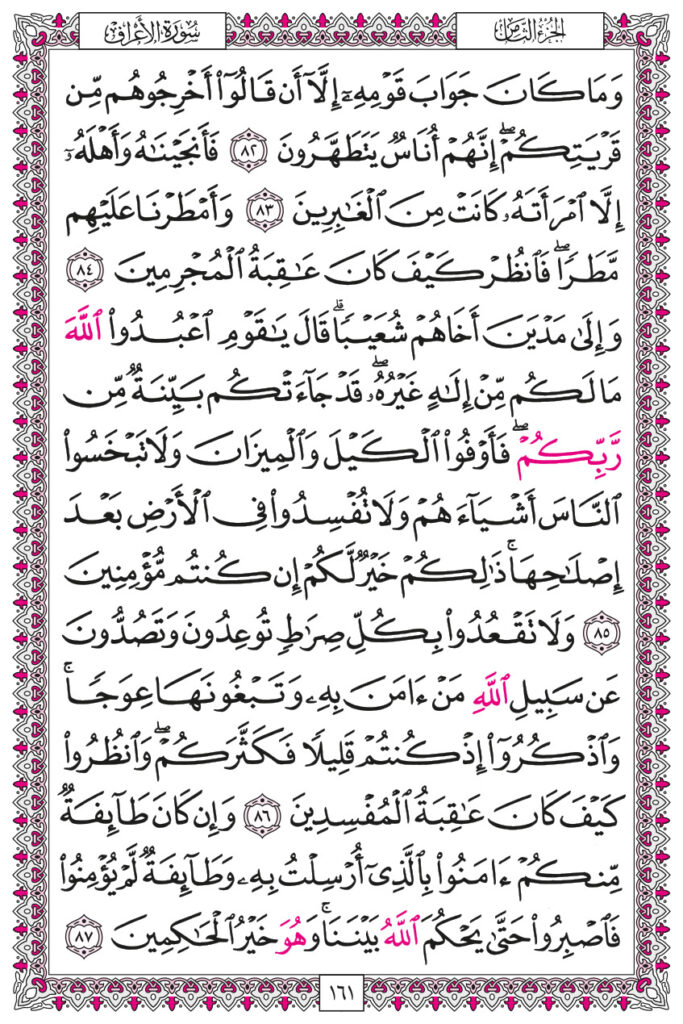 سُورَةُ الأَعْرَافِ
الجُزْءُ الثَّامِنُ
وَمَا كَانَ جَوَابَ قَوْمِهِۦٓ إِلَّآ أَن قَالُوٓاْ أَخْرِجُوهُم مِّن
قَرْيَتِكُمْۖ إِنَّهُمْ أُنَاسٌ يَتَطَهَّرُونَ ٨٢ فَأَنجَيْنَٰهُ وَأَهْلَهُۥٓ
إِلَّا ٱمْرَأَتَهُۥ كَانَتْ مِنَ ٱلْغَٰبِرِينَ ٨٣ وَأَمْطَرْنَا عَلَيْهِم
مَّطَرًاۖ فَٱنظُرْ كَيْفَ كَانَ عَٰقِبَةُ ٱلْمُجْرِمِينَ ٨٤
وَإِلَىٰ مَدْيَنَ أَخَاهُمْ شُعَيْبًاۗ قَالَ يَٰقَوْمِ ٱعْبُدُواْ ٱللَّهَ
مَا لَكُم مِّنْ إِلَٰهٍ غَيْرُهُۥۖ قَدْ جَآءَتْكُم بَيِّنَةٌ مِّن
رَّبِّكُمْۖ فَأَوْفُواْ ٱلْكَيْلَ وَٱلْمِيزَانَ وَلَا تَبْخَسُواْ
ٱلنَّاسَ أَشْيَآءَهُمْ وَلَا تُفْسِدُواْ فِى ٱلْأَرْضِ بَعْدَ
إِصْلَٰحِهَاۚ ذَٰلِكُمْ خَيْرٌ لَّكُمْ إِن كُنتُم مُّؤْمِنِينَ
٨٥ وَلَا تَقْعُدُواْ بِكُلِّ صِرَٰطٍ تُوعِدُونَ وَتَصُدُّونَ
عَن سَبِيلِ ٱللَّهِ مَنْ ءَامَنَ بِهِۦ وَتَبْغُونَهَا عِوَجًاۚ
وَٱذْكُرُوٓاْ إِذْ كُنتُمْ قَلِيلًا فَكَثَّرَكُمْۖ وَٱنظُرُواْ
كَيْفَ كَانَ عَٰقِبَةُ ٱلْمُفْسِدِينَ ٨٦ وَإِن كَانَ طَآئِفَةٌ
مِّنكُمْ ءَامَنُواْ بِٱلَّذِىٓ أُرْسِلْتُ بِهِۦ وَطَآئِفَةٌ لَّمْ يُؤْمِنُواْ
فَٱصْبِرُواْ حَتَّىٰ يَحْكُمَ ٱللَّهُ بَيْنَنَاۚ وَهُوَ خَيْرُ ٱلْحَٰكِمِينَ ٨٧
١٦١